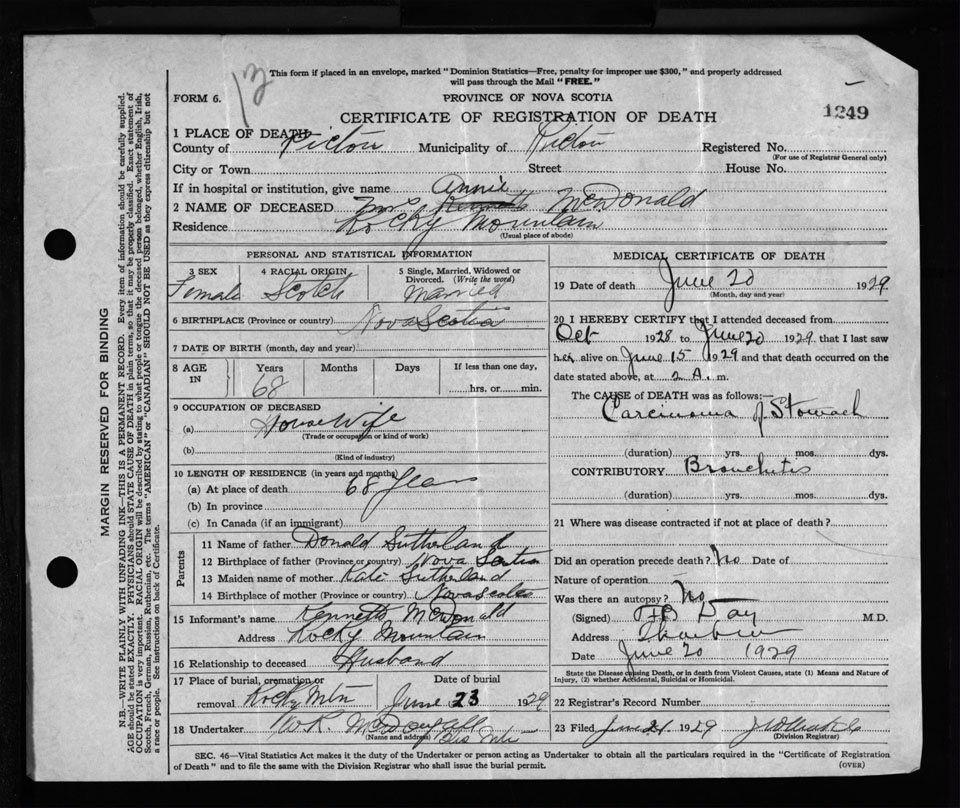 12
This form if placed in an envelope, marked "Dominion Statistics—Free, penalty for improper use $300," and properly addressed
will pass through the Mail "FREE."
FORM 6. PROVINCE OF NOVA SCOTIA
CERTIFICATE OF REGISTRATION OF DEATH 1249
1 PLACE OF DEATH
County of Pictou Municipality of Pictou Registered No.
(For use of Registrar General only)
City or Town Street House No.
If in hospital or institution, give name
Annie
2 NAME OF DECEASED Mrs Kenneth McDonald
Residence Rocky Mountain
(Usual place of abode)
PERSONAL AND STATISTICAL INFORMATION
3 SEX 4 RACIAL ORIGIN 5 Single, Married, Widowed or Divorced. (Write the word)
Female Scotch Married
6 BIRTHPLACE (Province or country) Nova Scotia
7 DATE OF BIRTH (month, day and year)
8 AGE IN Years Months Days If less than one day,
68 hrs. or min.
9 OCCUPATION OF DECEASED
(a) House Wife
(Trade or occupation or kind of work)
(b)
(Kind of industry)
10 LENGTH OF RESIDENCE (in years and months)
(a) At place of death 68 Years
(b) In province
(c) In Canada (if an immigrant)
Parents
11 Name of father Donald Sutherland
12 Birthplace of father (Province or country) Nova Scotia
13 Maiden name of mother Kate Sutherland
14 Birthplace of mother (Province or country) Nova Scotia
15 Informant's name Kenneth McDonald
Address Rocky Mountain
16 Relationship to deceased Husband
17 Place of burial, cremation or removal Rocky Mtn Date of burial June 23 1929
18 Undertaker W R McDougall
(Name and address)
MEDICAL CERTIFICATE OF DEATH
19 Date of death June 20 1929
(Month, day and year)
20 I HEREBY CERTIFY that I attended deceased from
Oct 1928 to June 20 1929 that I last saw
her alive on June 15 1929 and that death occurred on
date stated above, at 2 A. m.
The CAUSE of DEATH was as follows:—
Carcinoma of Stomach
(duration) yrs. mos. dys.
CONTRIBUTORY Bronchitis
(duration) yrs. mos. dys.
21 Where was disease contracted if not at place of death?
Did an operation precede death? No Date of
Nature of operation
Was there an autopsy? No
(Signed) Day M.D.
Address
Date June 20 1929
State the Disease causing Death, or in Death from Violent Causes, state (1) Means and Nature of
Injury, (2) whether Accidental, Suicidal or Homicidal.
22 Registrar's Record Number
23 Filed June 21 1929
(Division Registrar)
SEC. 46—Vital Statistics Act makes it the duty of the Undertaker or person acting as Undertaker to obtain all the particulars required in the "Certificate of Registration
of Death" and to file the same with the Division Registrar who shall issue the burial permit. (OVER)
MARGIN RESERVED FOR BINDING
N.B.—WRITE PLAINLY WITH UNFADING INK—THIS IS A PERMANENT RECORD. Every item of information should be carefully supplied.
AGE should be stated EXACTLY. PHYSICIANS should STATE CAUSE OF DEATH in plain terms, so that it may be properly classified. Exact statement of
OCCUPATION is very important. RACIAL ORIGIN will be described by stating to what people or tongue the deceased person belonged, whether English, Irish,
Scotch, French, German, Russian, Ruthenian, etc. The terms "AMERICAN" or "CANADIAN" SHOULD NOT BE USED as they express citizenship but not
a race or people. See instructions on back of Certificate.